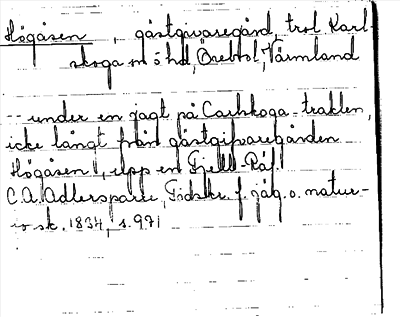 Högåsen, gästgivaregård, trol Karl-
skoga m ö hd, Örebro l, Värmland
-- under en jagt på Carlskoga-trakten,
icke långt från gästgifvaregården
Högåsen, upp en Fjell-Räf.
C.A. Adlersparre, Tidskr. f. jäg. o. natur-
forsk. 1834, s. 971